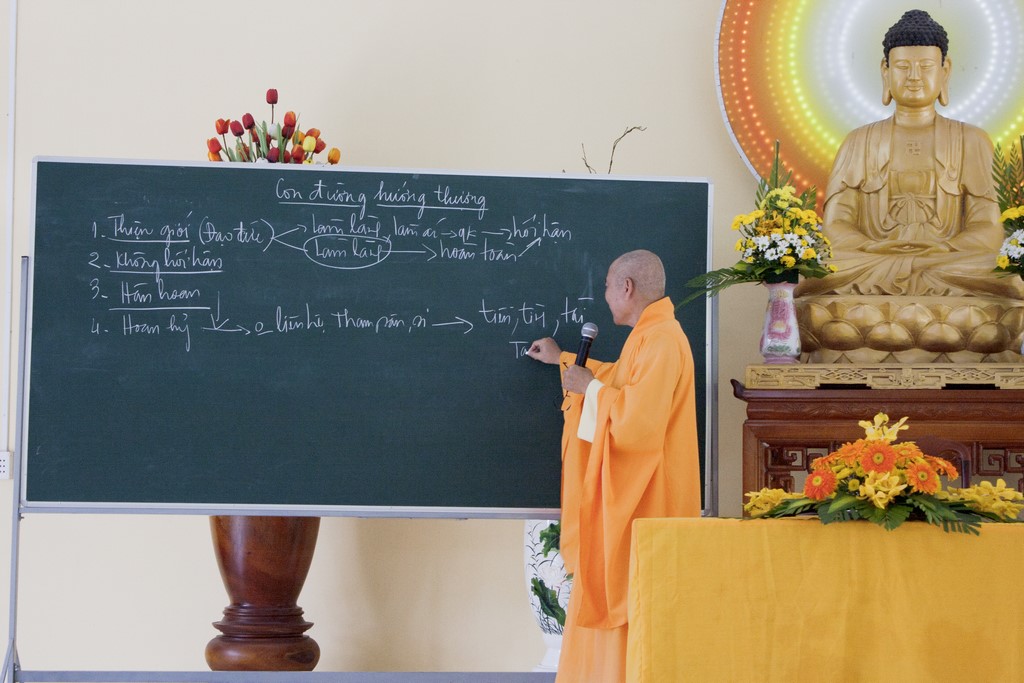 Con đường hướng thượng
1. Thiện giới (Đạo đức) làm lành, làm ác → qk → hối hận
Làm lành → hoàn toàn
2. Không hối hận
3. Hân hoan
4. Hoan hỷ → liên hệ, tham, sân, si → tiền, tình, tài
Ta